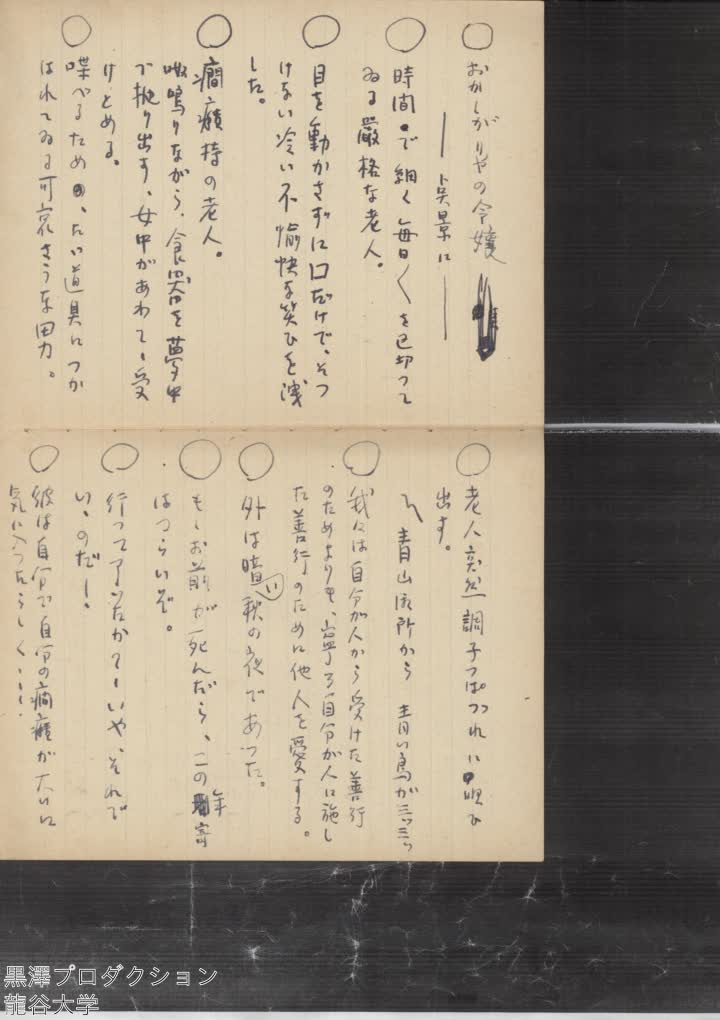 ○ おかしがりやの令嬢
―呉景に―
○ 時間で細く毎日〱を区切つて
ゐる厳格な老人。
○ 目を動かさずに口だけで、そつ
けない冷い不愉快な笑ひを洩
した。
○ 癇癪持の老人。
怒鳴りながら、食器を夢中
で抛り出す、女中があわてゝ受
けとめる。
○ 喋べるため、たゞ道具につか
はれてゐる可哀さうな男。
○ 老人突然調子つぱづれに唄ひ
出す。
〽青山御所から 青い鳥が三ッ三ッ
○ 我々は自分が人から受けた善行
のためよりも、寧ろ自分が人に施し
た善行のために他人を愛する。
○ 外は暗い秋の夜であつた。
○ もしお前が死んだら、この年寄
はつらいぞ。
○ 行つて了つたかて、いや、それで
いゝのだ!
○ 彼は自分で自分の癇癪が大いに
気に入つたらしく……
黒澤プロダクション
龍谷大学